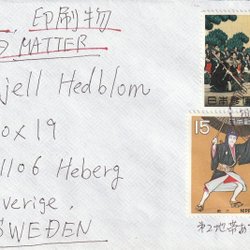 印刷物
MATTER
jell Hedblom
ox 19
1106 Heberg
verige.
SWEDEN
日本郵便
15
第2地帯あ